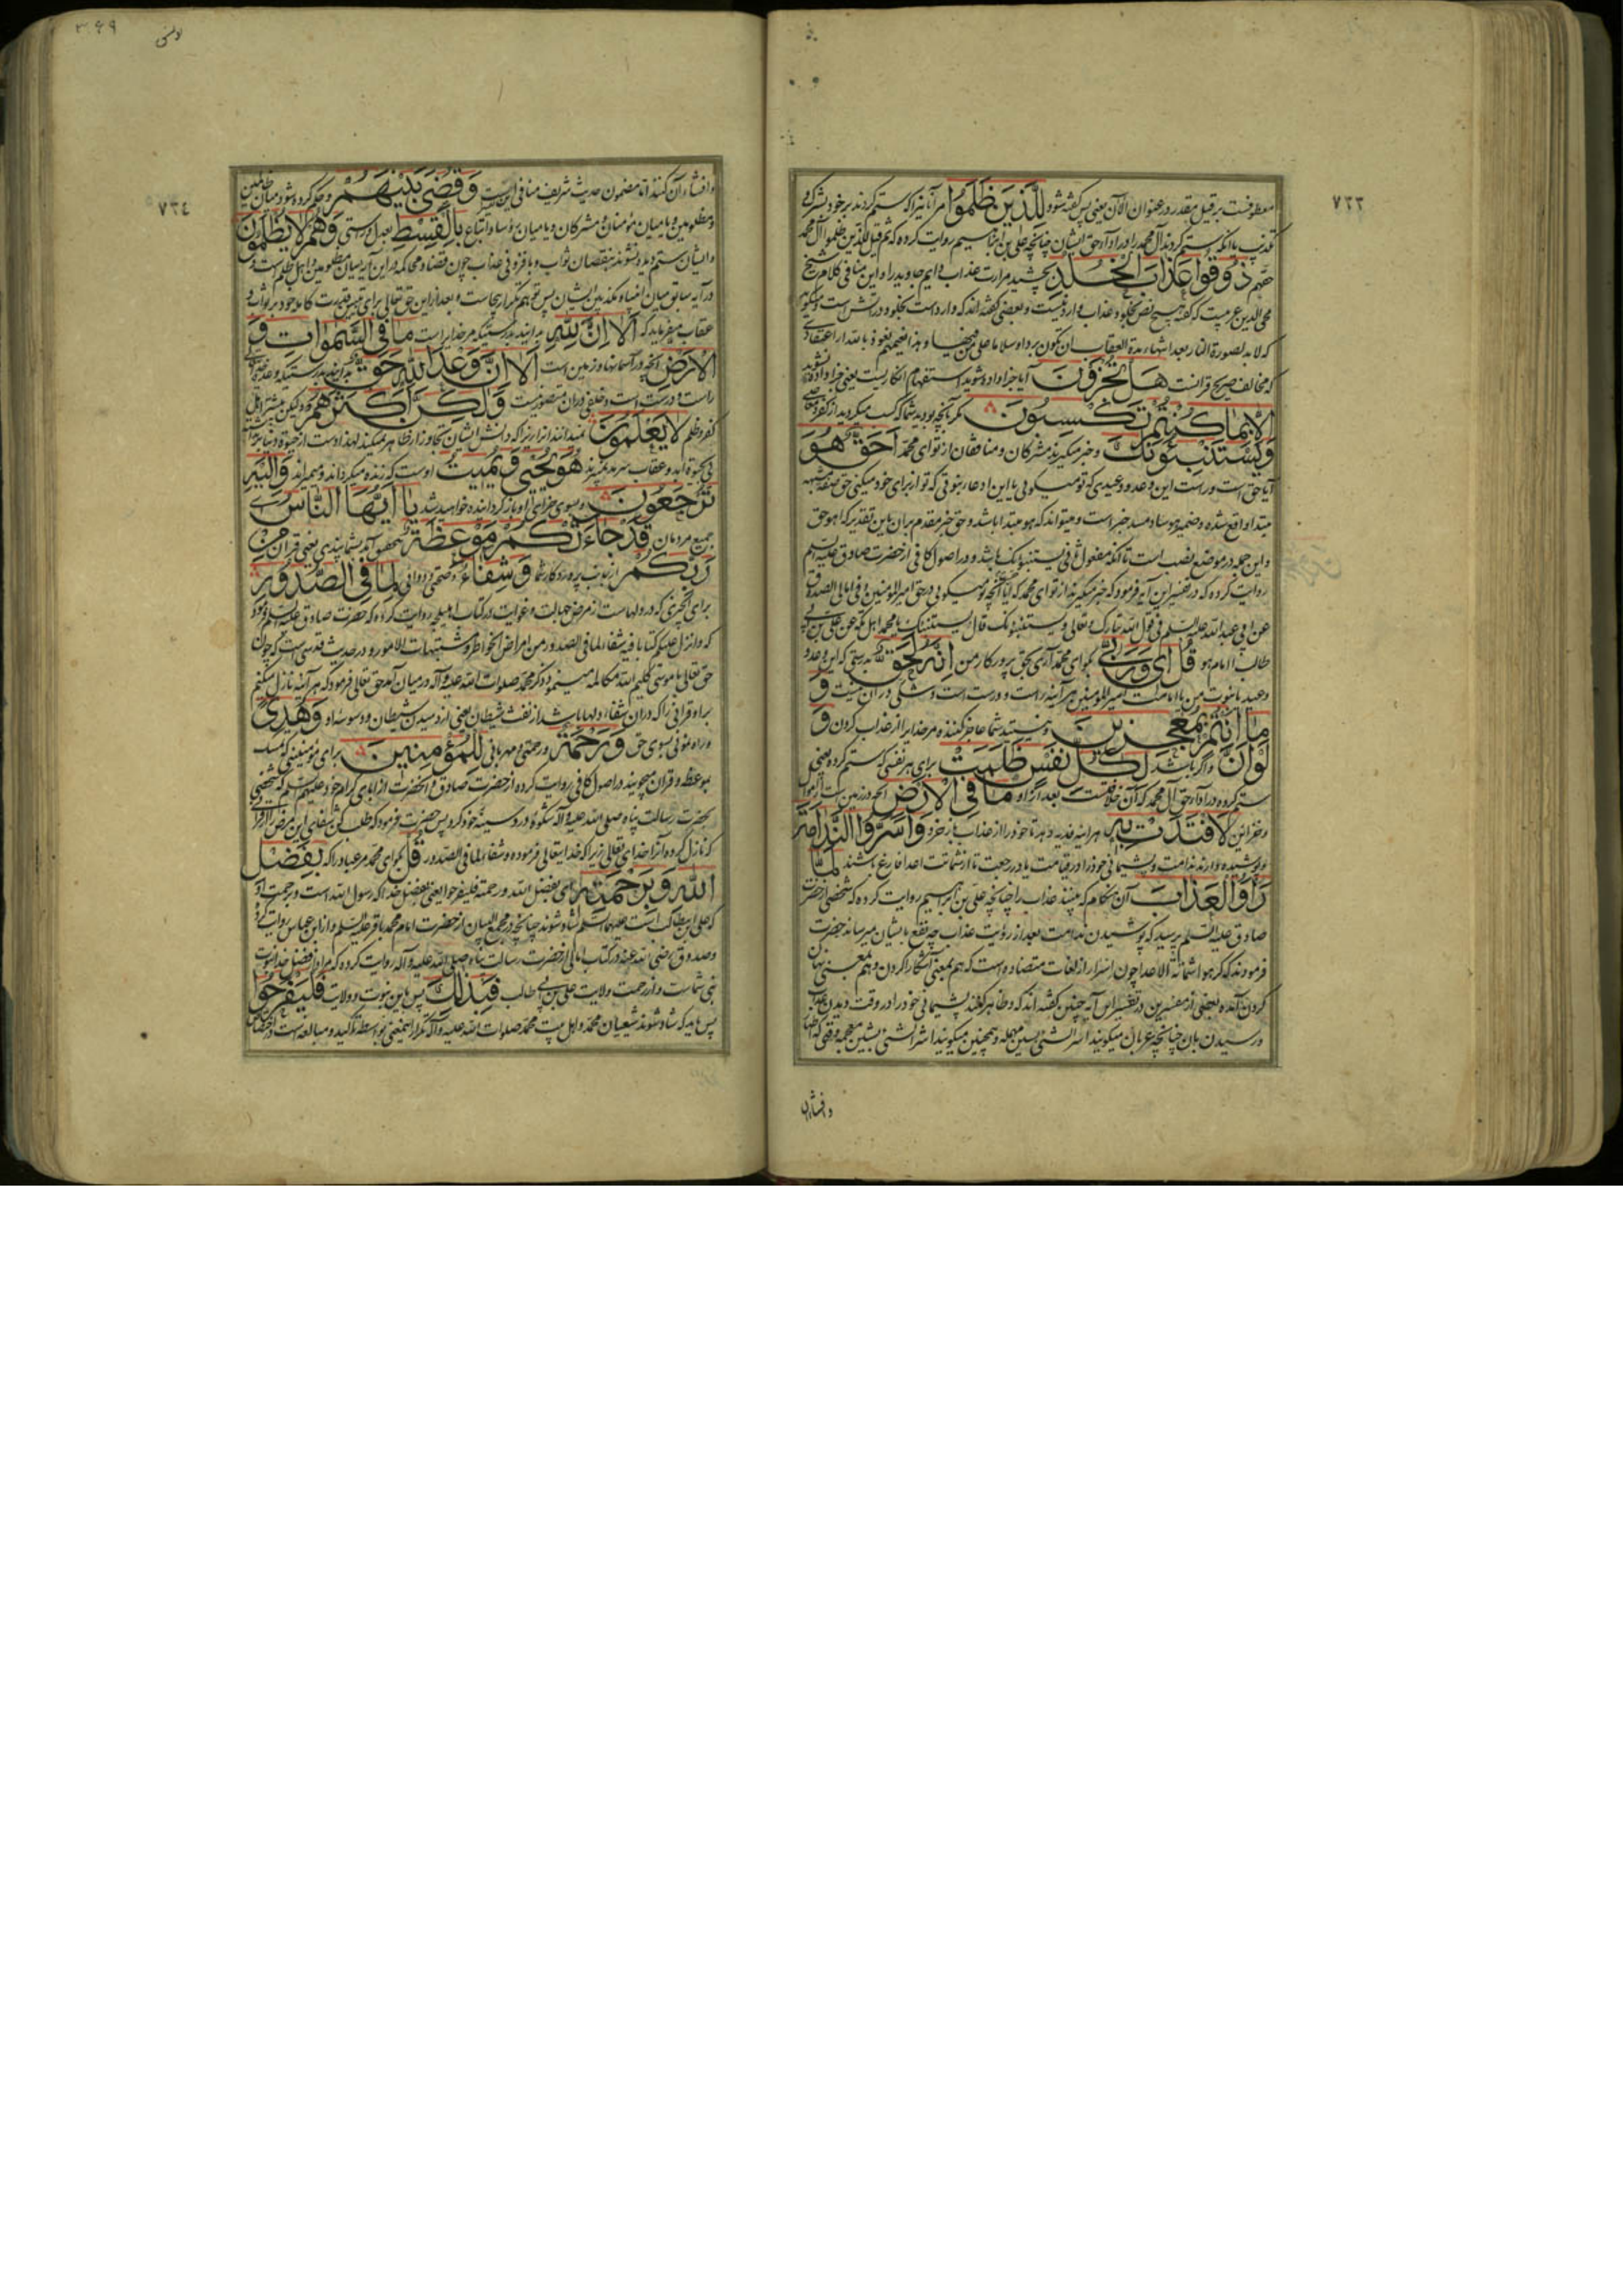 ٧٣٣
معطوفست بر قیل مقدر در عنوان الآن یعنی پس گفته شود للَّذِینَ ظَلَمُوا مر آنانیرا که ستم کردند بر خود بشرک و
تکذیب یا آنکه ستم کردند آل محمد را در اداء حق ایشان چنانچه علی بن ابراهیم روایت کرده که ثم قیل للذین ظلموا آل محمد
حقهم ذُوقُوا عَذَابَ الْخُلْدِ بچشید مرارت عذاب دایم جاوید را و این منافی کلام شیخ
محی الدین عربیست که گفته هیچ نص بخلود عذاب وارد نیست و بعضی گفته اند که وارد است بخلود در آتش است و میگوید
که لا بد لصورة النار بعد انتهاء مدة العقاب ان تکون بردا وسلاما علی من فیها و هذا نعیمهم نعوذ بالله از اعتقادی
که مخالف صریح قرآنست هَلْ تُجْزَوْنَ آیا جزا داده شوید استفهام انکاریست یعنی جزا داده نشوید
إِلَّا بِمَا كُنْتُمْ تَكْسِبُونَ مگر بآنچه بودید شما که کسب میکردید از کفر و معاصی
وَيَسْتَنْبِئُونَكَ و خبر میگیرند مشرکان و منافقان از تو ای محمد أَحَقٌّ هُوَ
آیا حق است و راست این وعد و وعیدی که تو میگوئی یا این ادعاء نبوتی که تو از برای خود میکنی حق صفت مشبهه
مبتدا واقع شده و ضمیر هو ساد مسد خبر است و میتواند که هو مبتدا باشد و حق خبر مقدم بر آن باین تقدیر که اهو حق
و این جمله در موضع نصب است تا آنکه مفعول ثانی یستنبئونک باشد و در اصول کافی از حضرت صادق علیه السلم
روایت کرده که در تفسیر این آیه فرمود که خبر میگیرند از تو ای محمد که آیا آنچه تو میگوئی در حق امیر المومنین و فی امالی الصدوق
عن ابی عبد الله علیه السلم فی قول الله تبارک و تعالی و یستنبئونک قال یستنبئک یا محمد اهل مکه عن علی بن ابی
طالب اامام هو قُلْ إِي وَرَبِّي بگو ای محمد آری بحق پروردگار من إِنَّهُ لَحَقٌّ بدرستی که این وعد و
وعید یا نبوت من یا امامت امیر المومنین هر آینه راست و درست است و شکی در آن نیست وَ
مَا أَنْتُمْ بِمُعْجِزِينَ و نیستید شما عاجز کننده مر خدا را از عذاب کردن وَ
لَوْ أَنَّ و اگر باشد لِكُلِّ نَفْسٍ ظَلَمَتْ برای هر نفسی که ستم کرده یعنی
ستم کرده در اداء حق آل محمد که آن خلافتست بعد از او مَا فِي الْأَرْضِ آنچه در زمین است از اموال
و خزاین لَافْتَدَتْ بِهِ هر آینه فدیه دهد تا خود را از عذاب باز خرد وَأَسَرُّوا النَّدَامَةَ
و پوشیده دارند ندامت و پشیمانی خود را در قیامت یا در رجعت تا از شماتت اعدا فارغ باشند لَمَّا
رَأَوُا الْعَذَابَ آن هنگام که ببینند عذاب را چنانچه علی بن ابراهیم روایت کرده که شخصی از حضرت
صادق علیه السلم پرسید که پوشیدن ندامت بعد از رؤیت عذاب چه نفع بایشان میرساند حضرت
فرمودند که کرهوا شماتة الاعدا چون اسرار از لغات متضاده است که هم بمعنی آشکارا کردن و هم بمعنی نهان
کردن آمده و بعضی از مفسرین در تفسیر این آیه چنین گفته اند که و ظاهر کنند پشیمانی خود را در وقت دیدن عذاب
و رسیدن بآن چنانچه عربان میگویند اسر الشی بسین مهمله و همچنین میگویند اشر الشی بشین معجمه وقتی که اظهار
و افشاء آن
٣٤٩
یونس
٧٣٤
و افشاء آن کنند اما مضمون حدیث شریف منافی این است وَقُضِيَ بَيْنَهُمْ و حکم کرده شود میان ظالمین
و مظلومین و یا میان مؤمنان و مشرکان و یا میان رؤسا و اتباع بِالْقِسْطِ بعدل و راستی وَهُمْ لَا يُظْلَمُونَ
و ایشان ستم دیده نشوند بنقصان ثواب و یا فزونی عذاب چون قضاء و محاکمه در این آیه میان مظلومین و اهل ظلم است و
در آیه سابق میان انبیاء و مکذبین ایشان پس توهم تکرار بیجاست و بعد از این حق تعالی برای تقریر قدرت کامله خود بر ثواب و
عقاب میفرماید که أَلَا إِنَّ لِلَّهِ بدانید بدرستیکه مر خدایراست مَا فِي السَّمَوَاتِ وَ
الْأَرْضِ آنچه در آسمانها و زمین است أَلَا إِنَّ وَعْدَ اللَّهِ حَقٌّ بدانید بدرستیکه وعده خدای
راست و درست است و خلفی در آن متصور نیست وَلَكِنَّ أَكْثَرَهُمْ و لیکن بیشتر اهل
کفر و ظلم لَا يَعْلَمُونَ نمیدانند آنرا زیرا که دانش ایشان تجاوز از ظاهر نمیکند
هُوَ يُحْيِي وَيُمِيتُ اوست که زنده میگرداند و میمیراند وَإِلَيْهِ
تُرْجَعُونَ و بسوی جزای او باز گردانیده خواهید شد يَا أَيُّهَا النَّاسُ ای
جمیع مردمان قَدْ جَاءَتْكُمْ مَوْعِظَةٌ بتحقیق آمد بشما پندی یعنی قرآن مِنْ
رَبِّكُمْ از جانب پروردگار شما وَشِفَاءٌ و صحتی و دوائی لِمَا فِي الصُّدُورِ
برای آنچیزی که در دلهاست از مرض جهالت و غوایت در کتاب اهلیلجه روایت کرده که حضرت صادق علیه السلم فرمود
که و انزل علیکم کتابا فیه شفاء لما فی الصدور من امراض الخواطر و مشتبهات الامور و در حدیث قدسی است که چون
حق تعالی با موسی کلیم الله مکالمه مینمود ذکر محمد صلوات الله علیه و آله در میان آمد حق تعالی فرمود که هر آینه نازل میکنم
بر او قرآنی را که در آن شفاء دلها باشد از نفث شیطان یعنی از دمیدن شیطان و وسوسه او وَهُدًى
و راه نمونی بسوی حق وَرَحْمَةٌ و رحمتی و مهربانی لِلْمُؤْمِنِينَ برای مؤمنینی که تمسک
بموعظه قرآن میجویند در اصول کافی روایت کرده از حضرت صادق و آنحضرت از آبای کرام خود علیهم السلم که شخصی
بحضرت رسالت پناه صلی الله علیه و آله شکوهٔ درد سینهٔ خود کرد پس حضرت فرمود که طلب کن شفای این مرض را از قرآن
که نازل کرده آنرا خدای تعالی زیرا که خدایتعالی فرموده و شفاء لما فی الصدور قُلْ بگو ای محمد مر عباد را که بِفَضْلِ
اللَّهِ وَبِرَحْمَتِهِ ای بفضل الله و رحمته فلیفرحوا یعنی بفضل خدا که رسول الله است و برحمت او
که علی ابن ابیطالب است علیهما السلم شاد شوند چنانچه در مجمع البیان از حضرت امام محمد باقر علیه السلم و از ابن عباس روایت کرده
و صدوق رضی الله عنه در کتاب امالی از حضرت رسالت پناه صلی الله علیه و آله روایت کرده که مراد از فضل خدا نبوت
نبی شماست و از رحمت ولایت علی بن ابی طالب فَبِذَلِكَ پس باین نبوت و ولایت فَلْيَفْرَحُوا
پس باید که شاد شوند شیعیان محمد و اهل بیت محمد صلوات الله علیه و آله تکرار اینمعنی بواسطه تاکید و مبالغه است